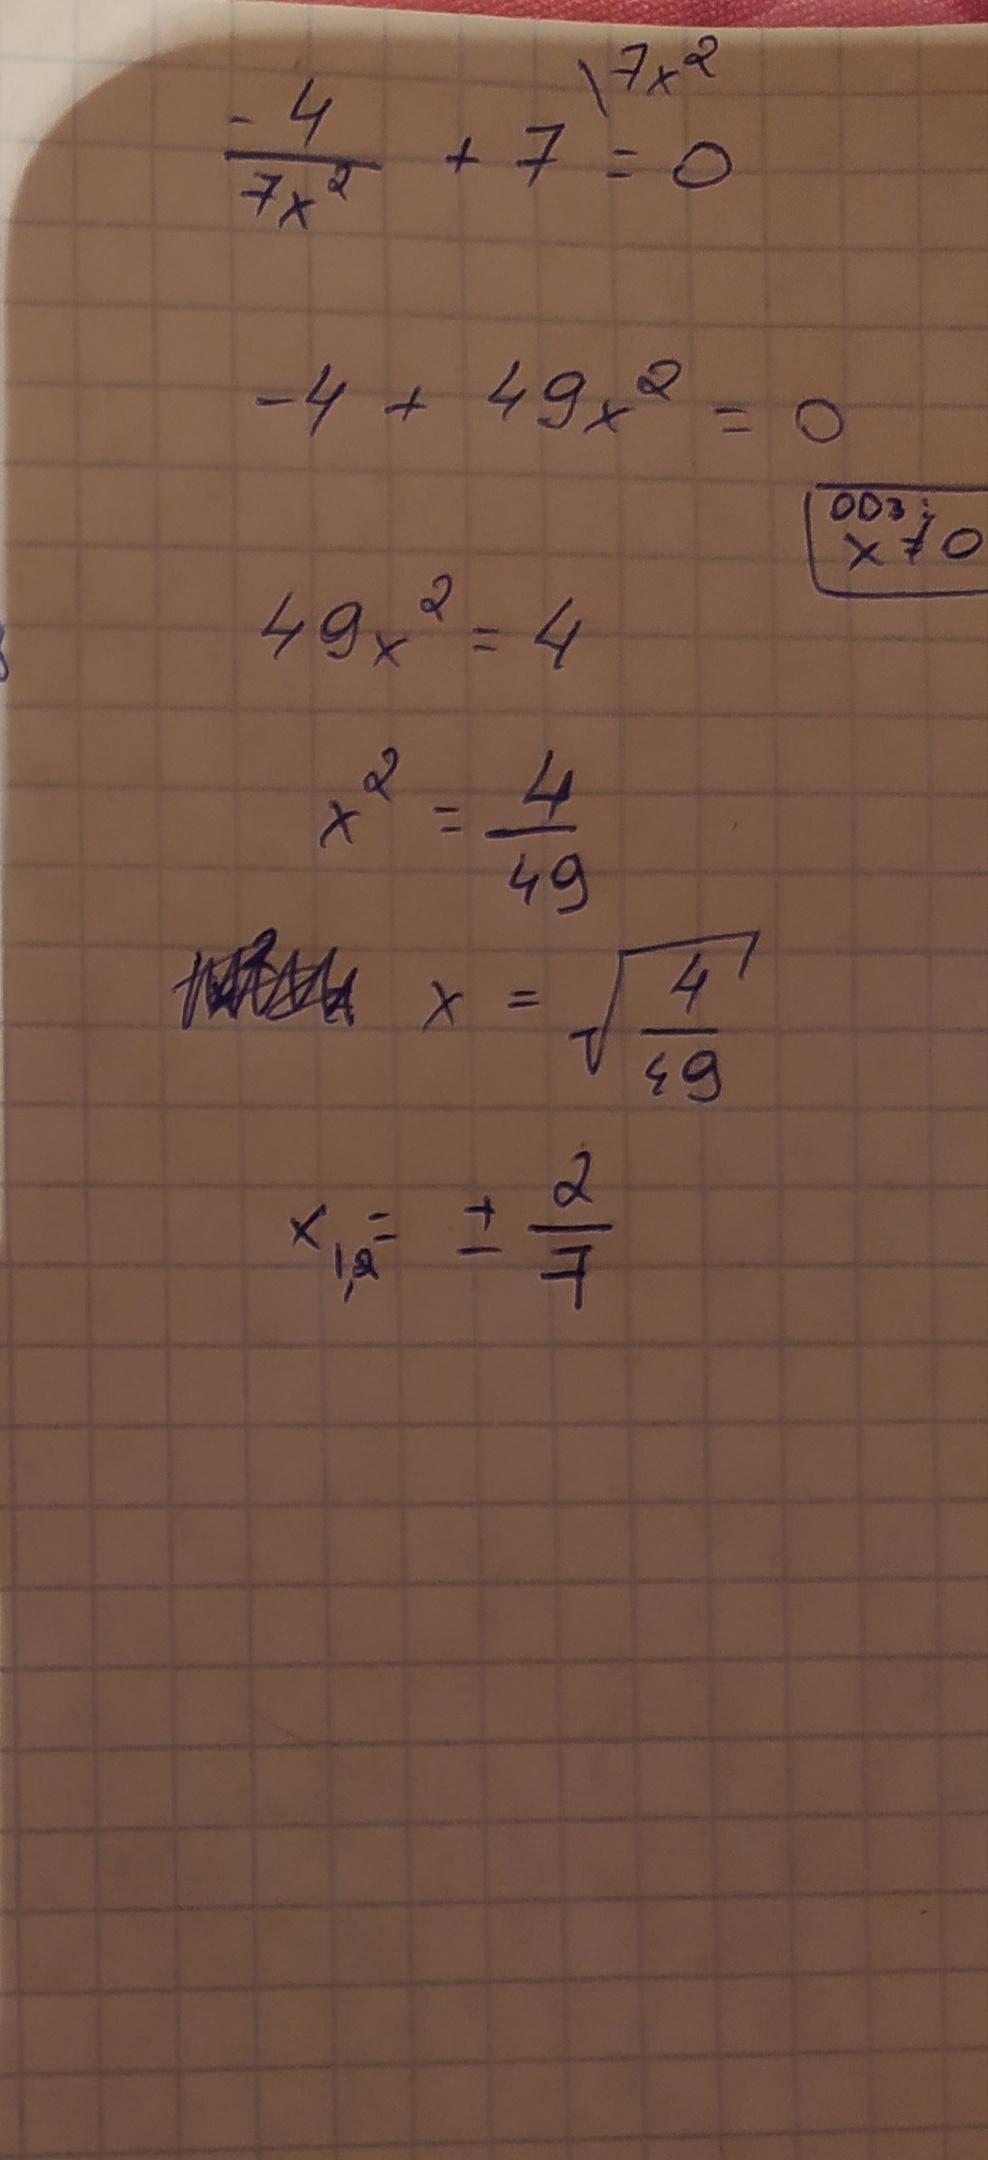 \7x²
-4/7x² + 7 = 0
-4 + 49x² = 0
ОДЗ:
x ≠ 0
49x² = 4
x² = 4/49
x = √(4/49)
x₁,₂ = ± 2/7